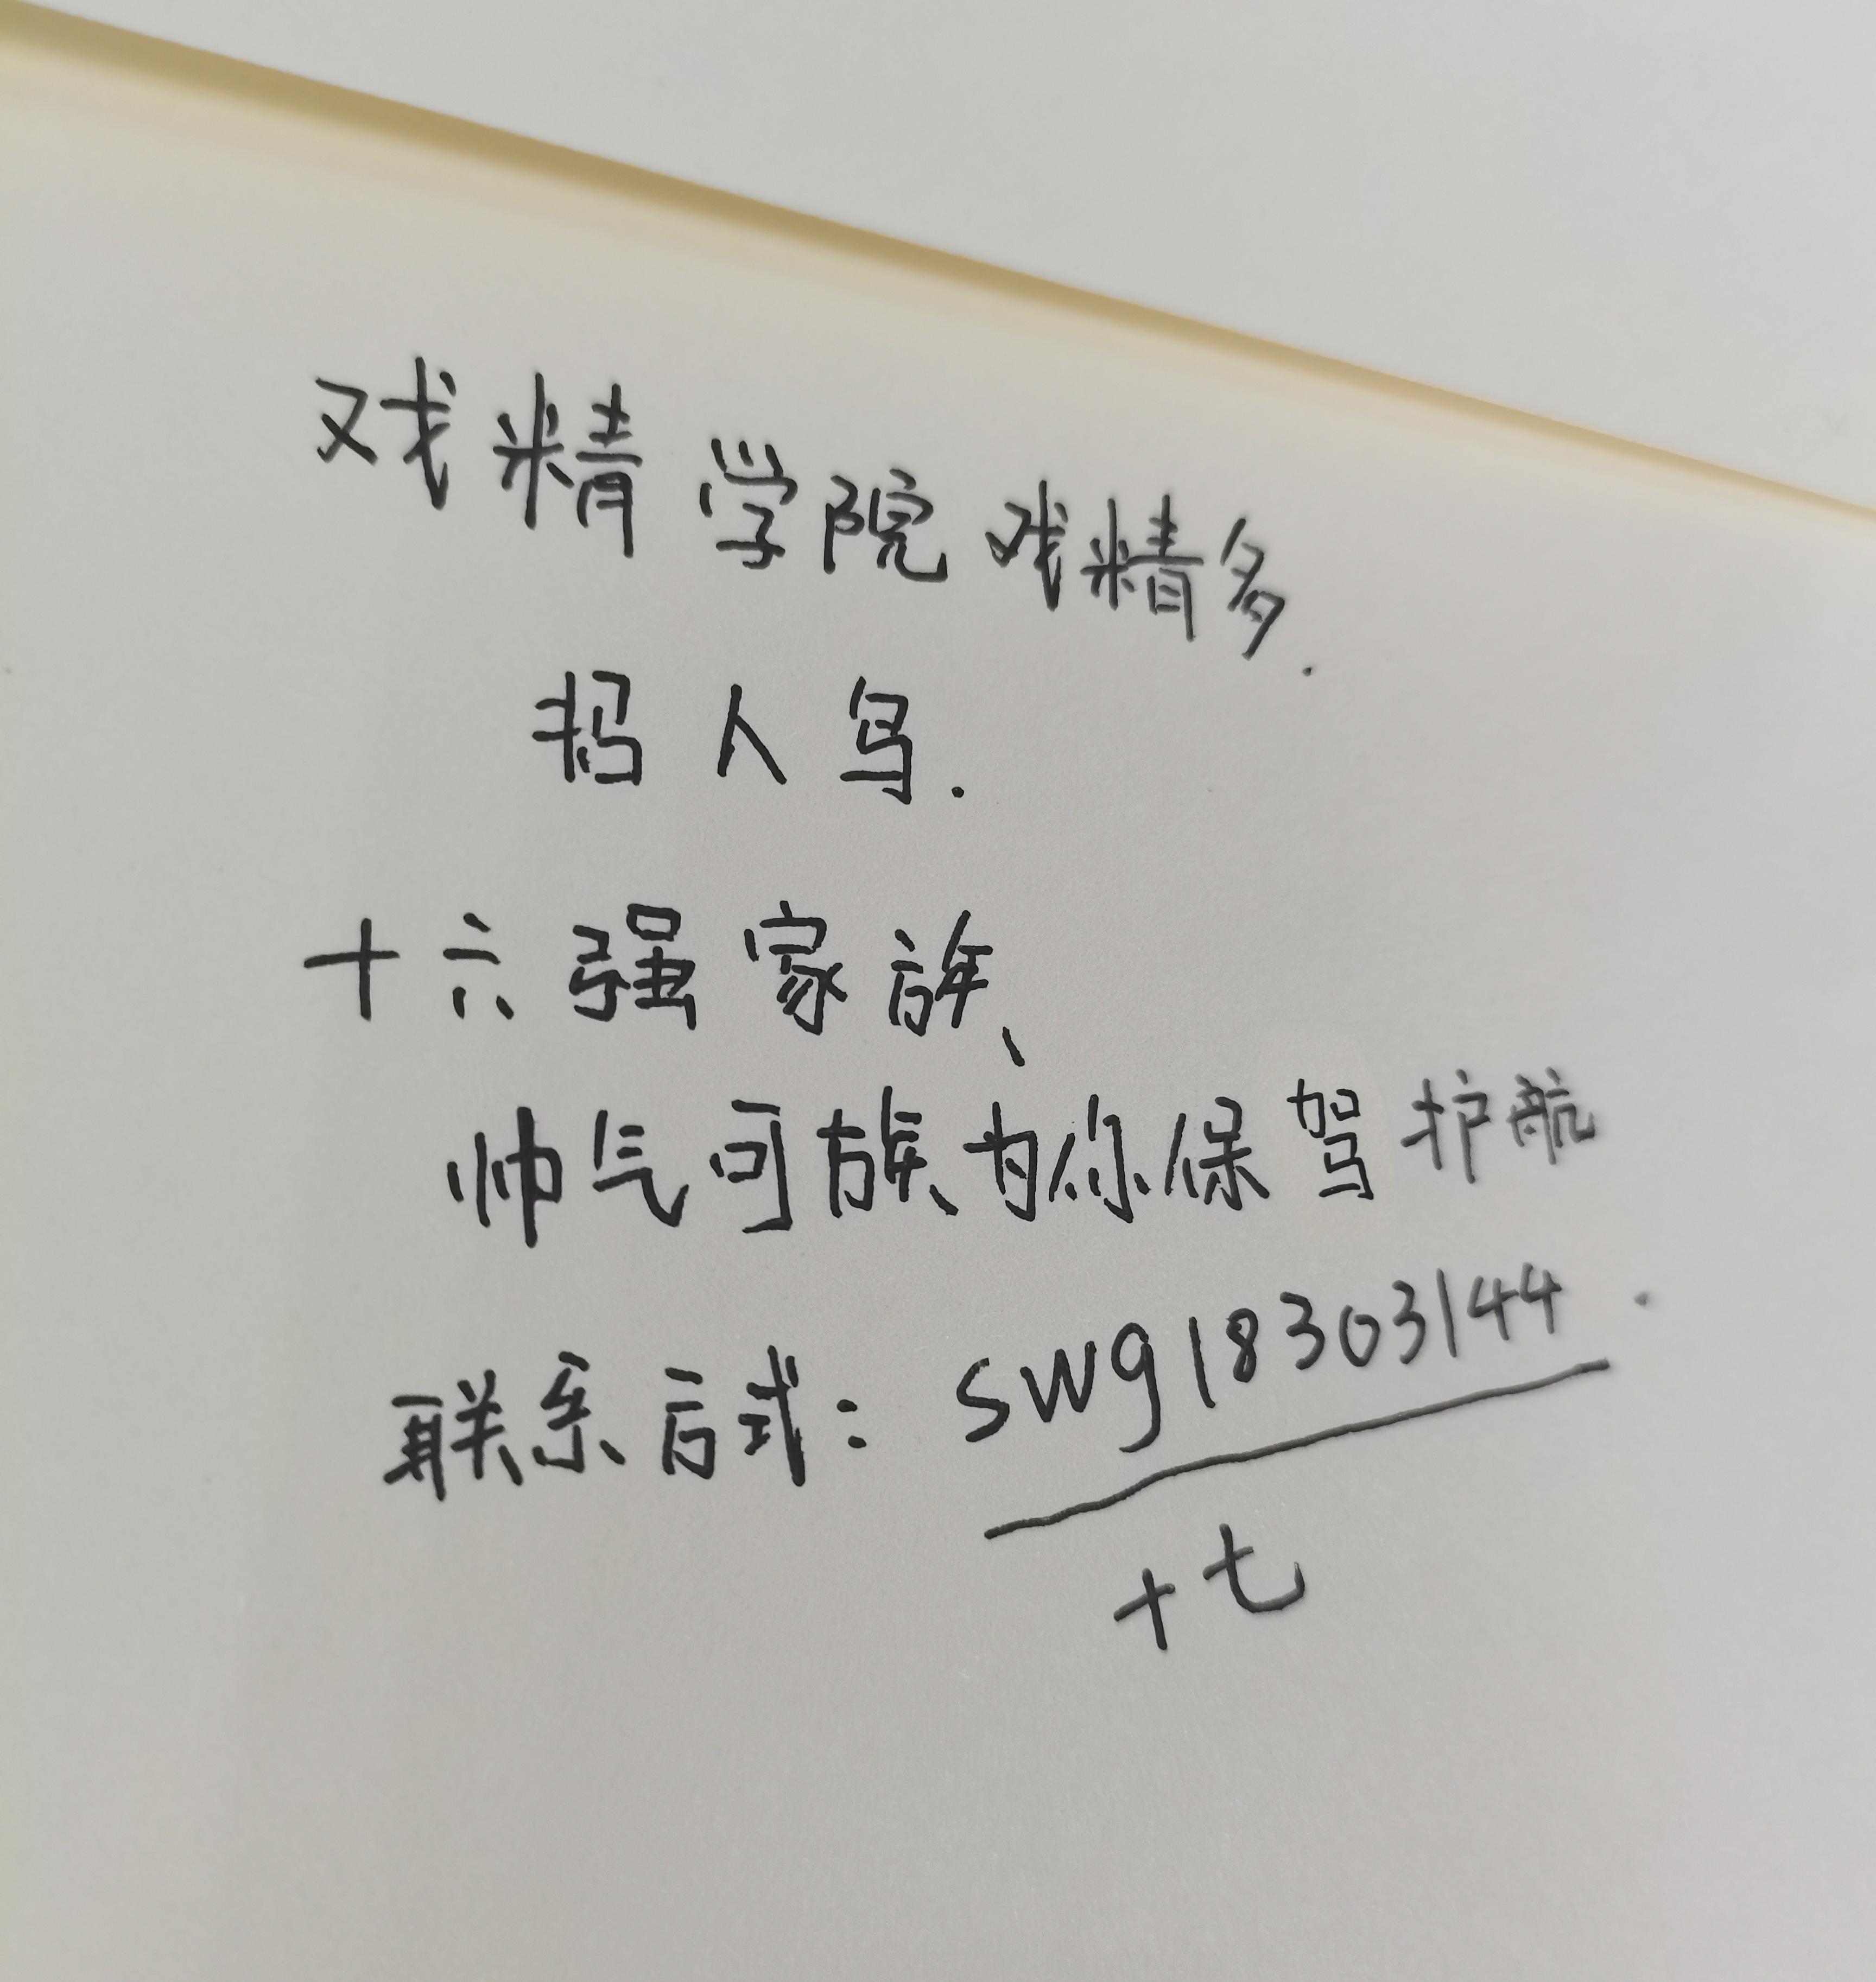 戏精学院戏精多.
招人鸟.
十六强家族、
帅气可族为你保驾护航
联系方式：swg18303144.
十七